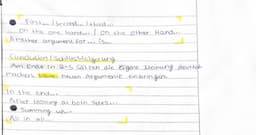 First... / Second... / Third...
On the one hand... / On the other hand...
Another argument for ... is...
Conclusion / Schlussfolgerung
Am Ende in 2-3 Sätzen die eigene Meinung deutlich
machen, keine neuen Argumente einbringen
In the end...
After looking at both sides...
Summing up...
All in all...